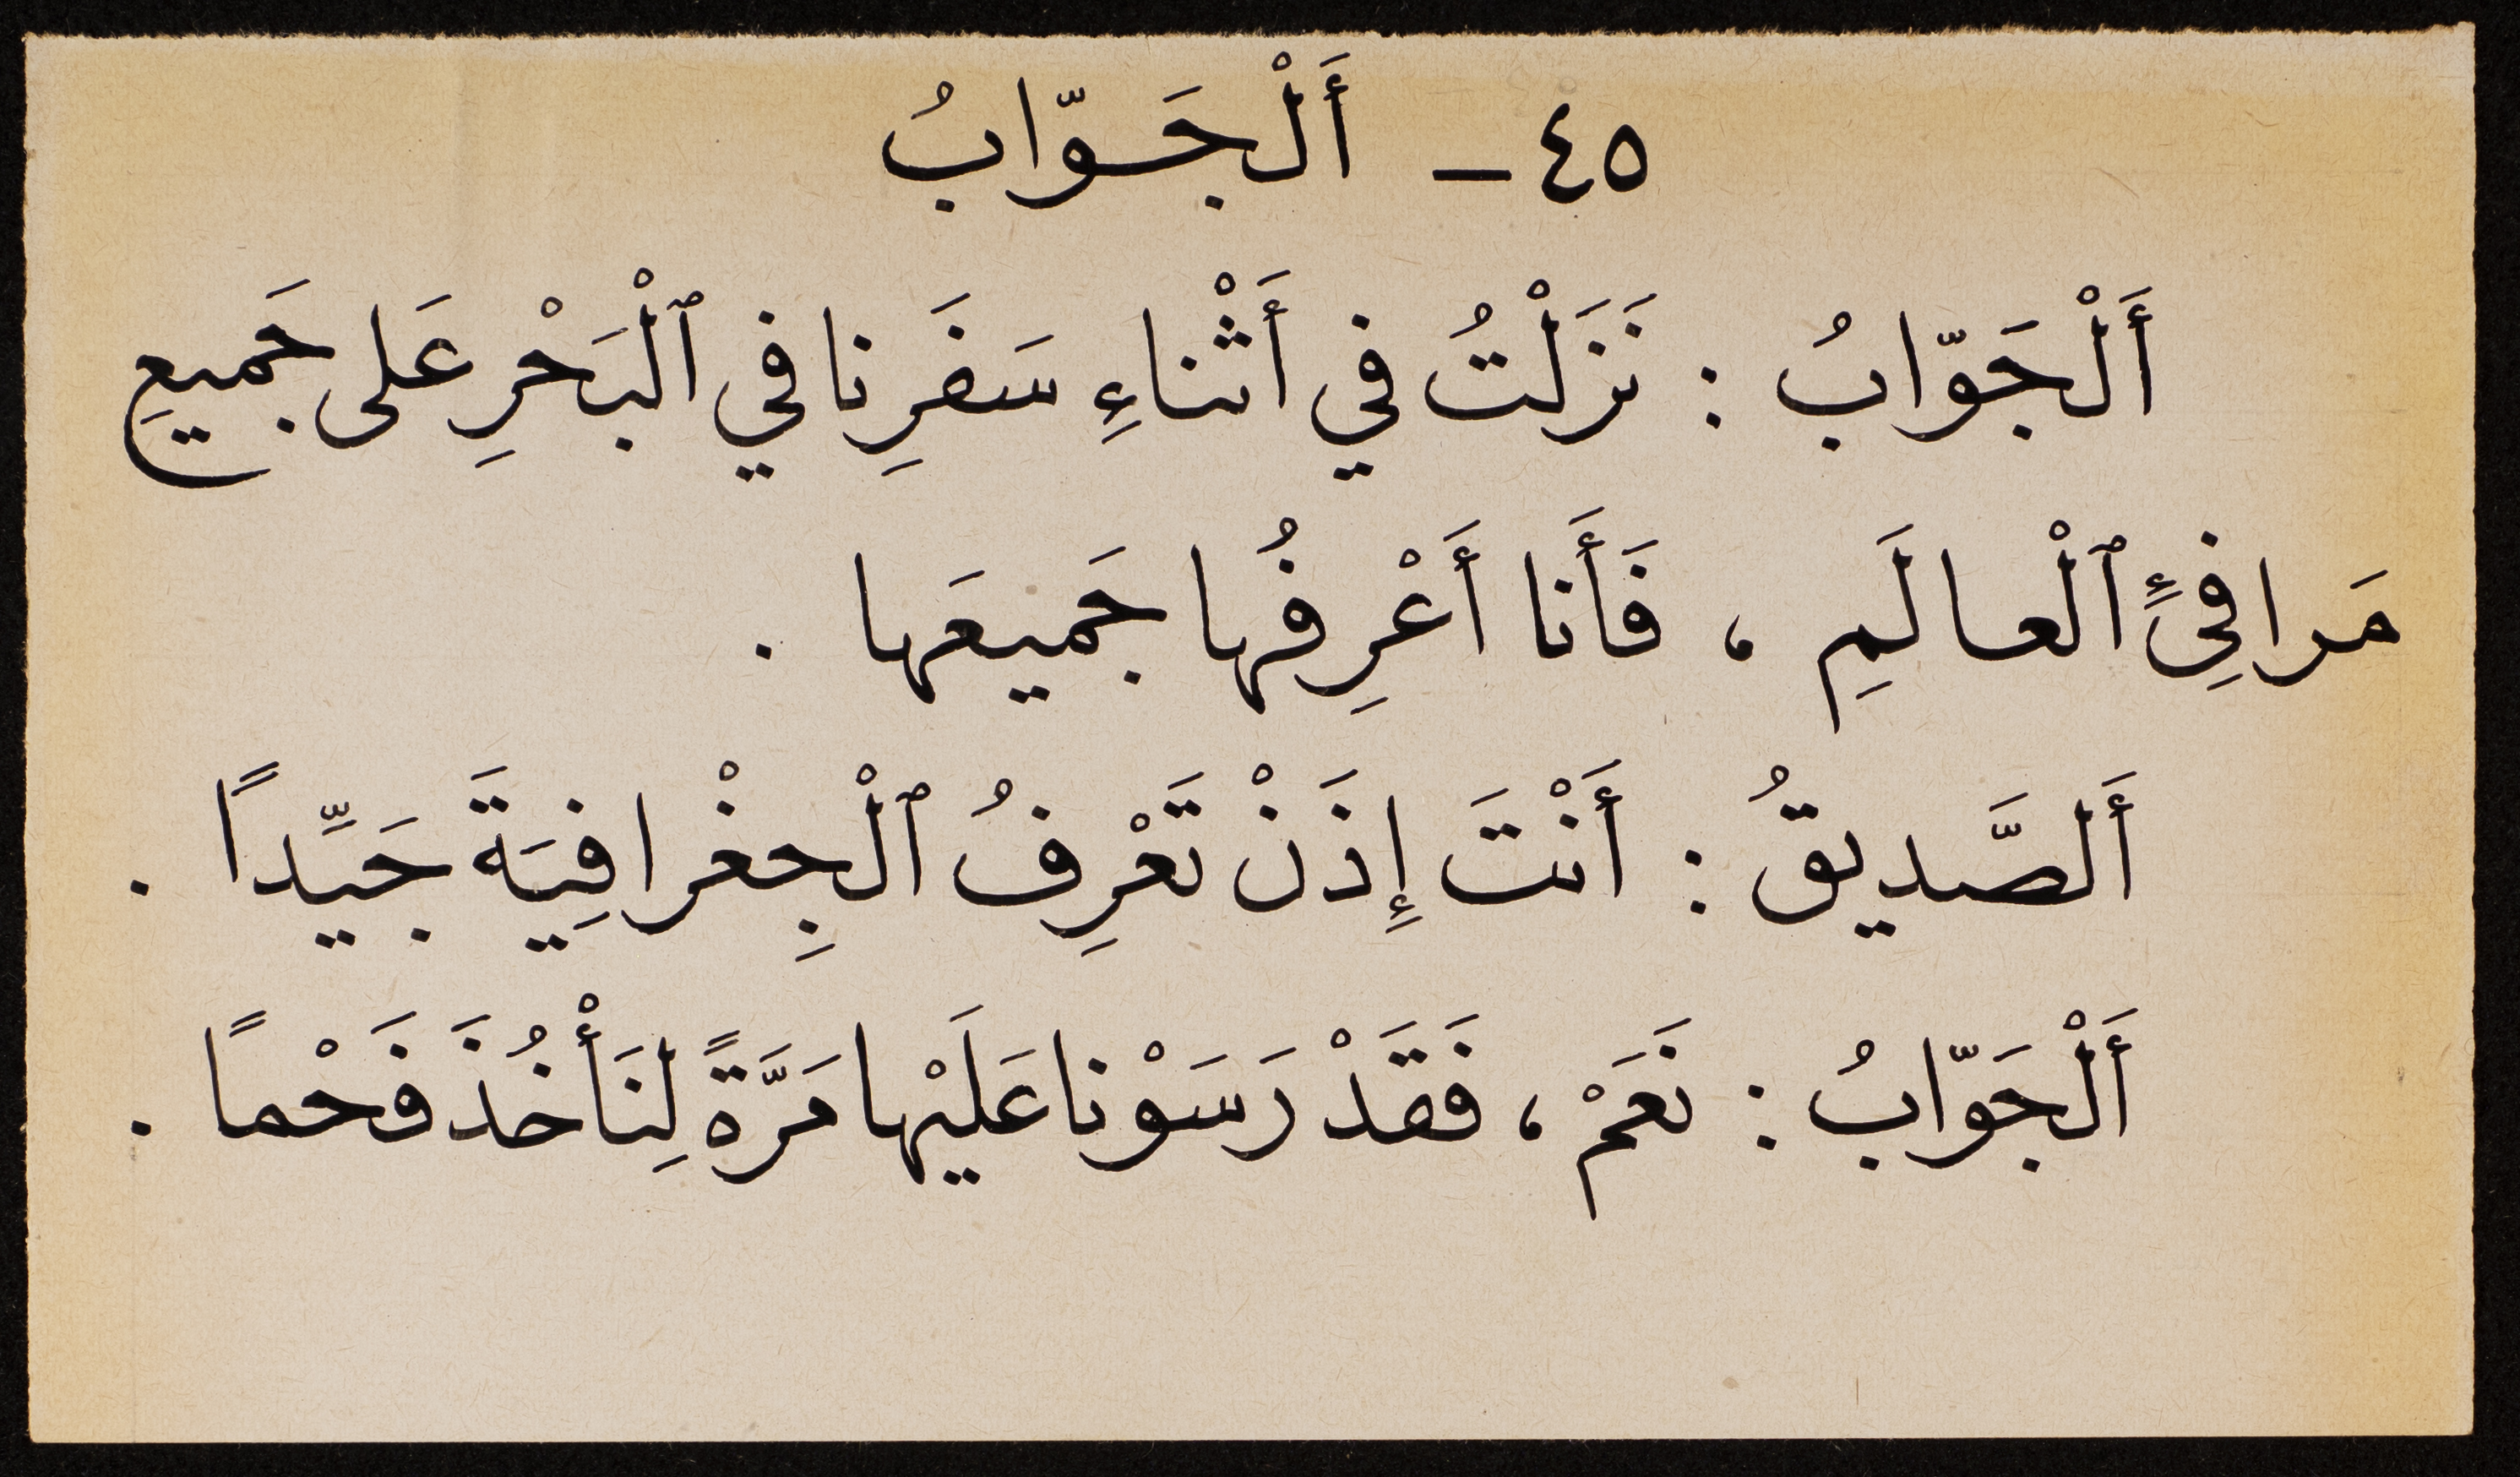 ٤٥ – أَلْجَوّابُ
أَلْجَوّابُ : نَزَلْتُ في أَثْناءِ سَفَرِنا في ٱلْبَحْرِ عَلى جَميعِ
مَرافِئٍ ٱلْعالَمِ ، فَأَنا أَعْرِفُها جَميعَها .
أَلصَّديقُ : أَنْتَ إِذَنْ تَعْرِفُ ٱلْجِغْرافِيَةَ جَيِّداً .
أَلْجَوّابُ : نَعَمْ ، فَقَدْ رَسَوْنا عَلَيْها مَرَّةً لِنَأْخُذَ فَحْماً .